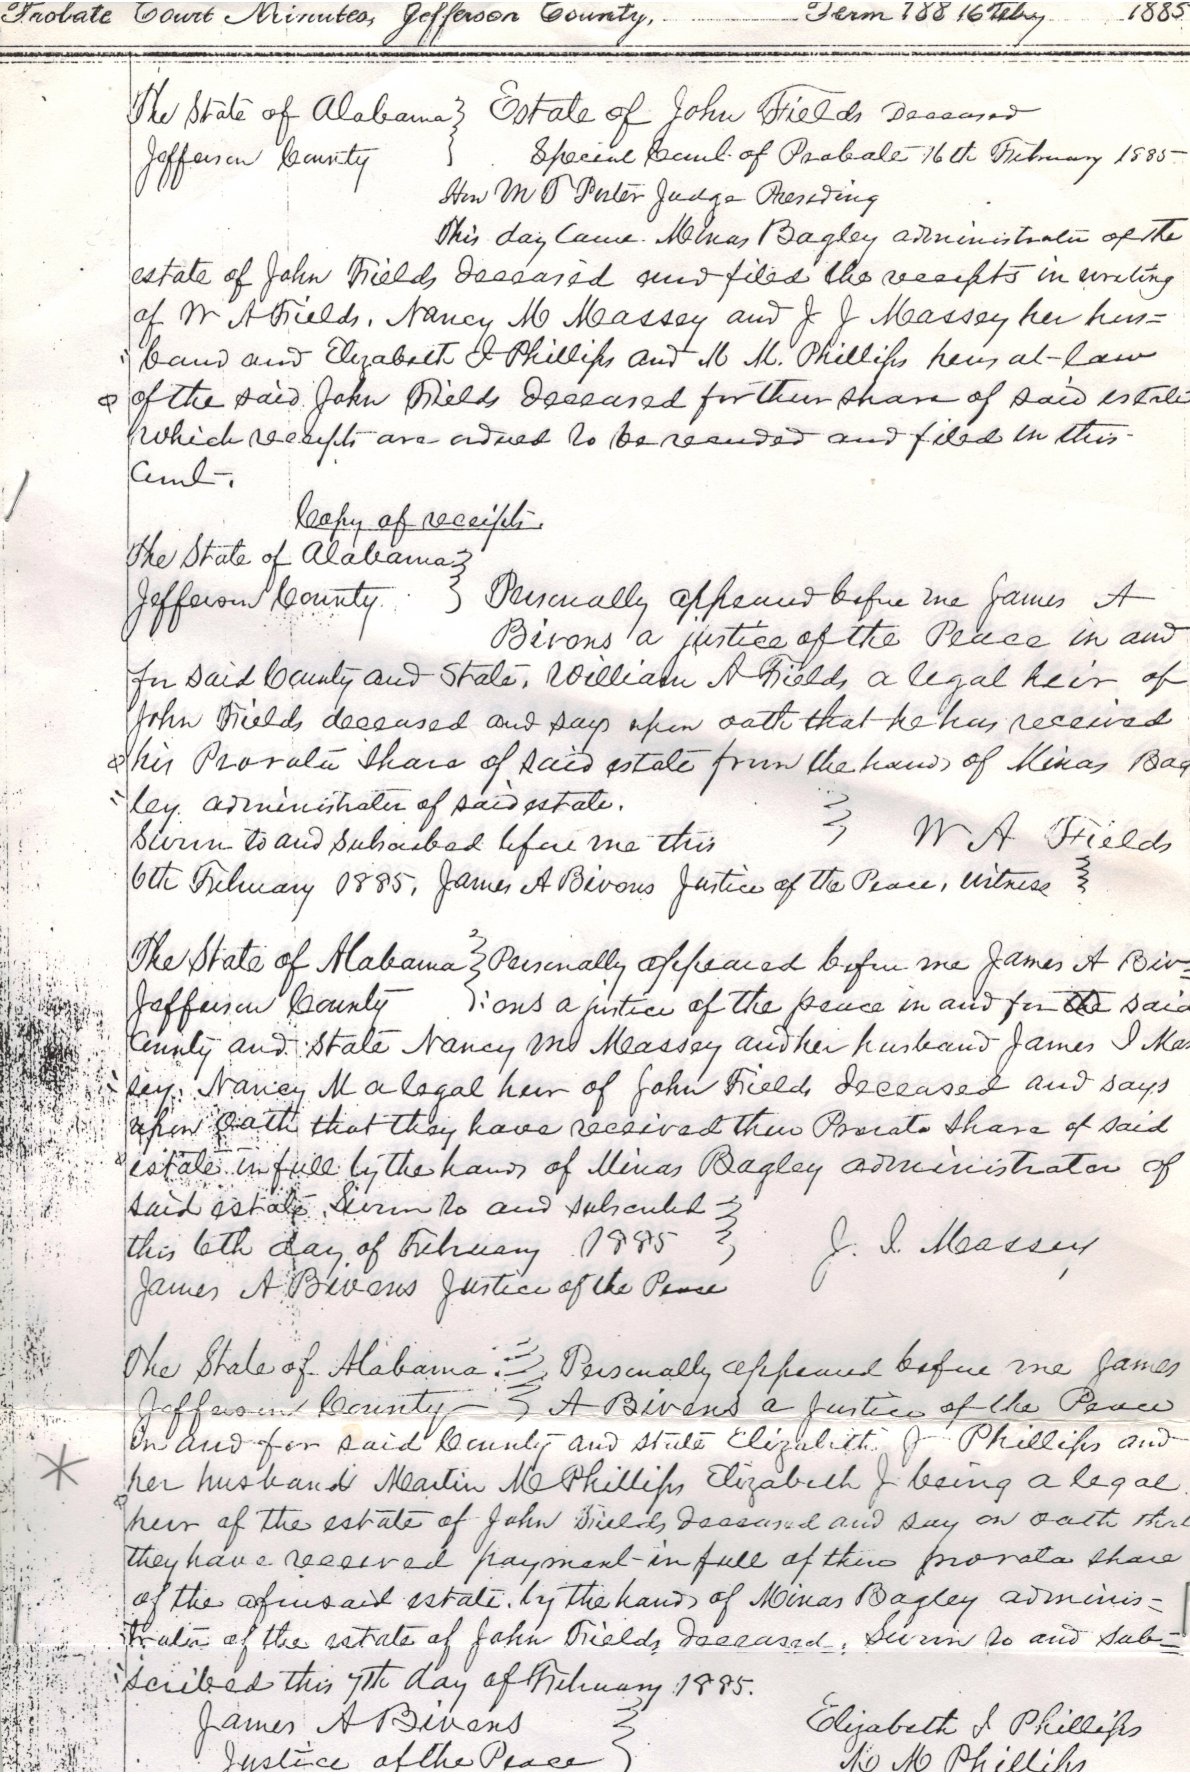 Probate Court Minutes, Jefferson County, Term 188 16 Feby 1885
The State of Alabama } Estate of John Fields Deceased
Jefferson County } Special Court of Probate 16th February 1885
Hon M T Porter Judge Presiding
This day Came Minas Bagley administrator of the
estate of John Fields deceased and filed the receipts in writing
of W A Fields, Nancy M Massey and J J Massey her hus=
band and Elizabeth J Phillips and M M. Phillips heirs at-law
of the said John Fields deceased for their share of said estate
which receipts are ordered to be recorded and filed in this
Court.
Copy of receipts.
The State of Alabama }
Jefferson County } Personally appeared before me James A
Bivens a justice of the Peace in and
for said County and State, William A Fields a legal heir of
John Fields deceased and says upon oath that he has received
his Prorata Share of said estate from the hands of Minas Bag
ley administrator of said estate.
Sworn to and subscribed before me this } W A Fields
6th February 1885, James A Bivens Justice of the Peace, witness }
The State of Alabama } Personally appeared before me James A Biv=
Jefferson County } ens a justice of the peace in and for the said
County and State Nancy M Massey and her husband James I Mas
sey. Nancy M a legal heir of John Fields deceased and says
upon Oath that they have received their Prorata Share of said
estate in full by the hands of Minas Bagley administrator of
said estate. Sworn to and subscribed }
this 6th day of February 1885 } J. I. Massey
James A Bivens Justice of the Peace
The State of Alabama } Personally appeared before me James
Jefferson County } A Bivens a Justice of the Peace
in and for said County and State Elizabeth J Phillips and
her husband Martin M Phillips Elizabeth J being a legal
heir of the estate of John Fields deceased and say on oath that
they have received payment in full of their prorata share
of the aforesaid estate by the hands of Minas Bagley adminis=
trator of the estate of John Fields deceased. Sworn to and sub=
scribed this 7th day of February 1885.
James A Bivens } Elizabeth J Phillips
Justice of the Peace } M M Phillips